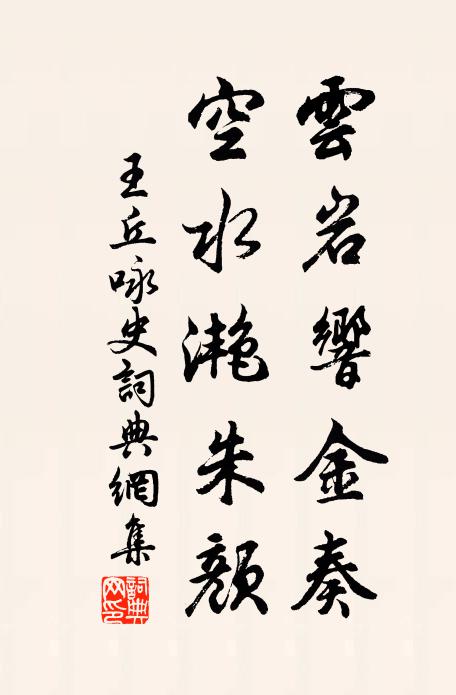 雲岩響金奏
空水灔朱顏
王丘咏史詞典網集
詞典網印